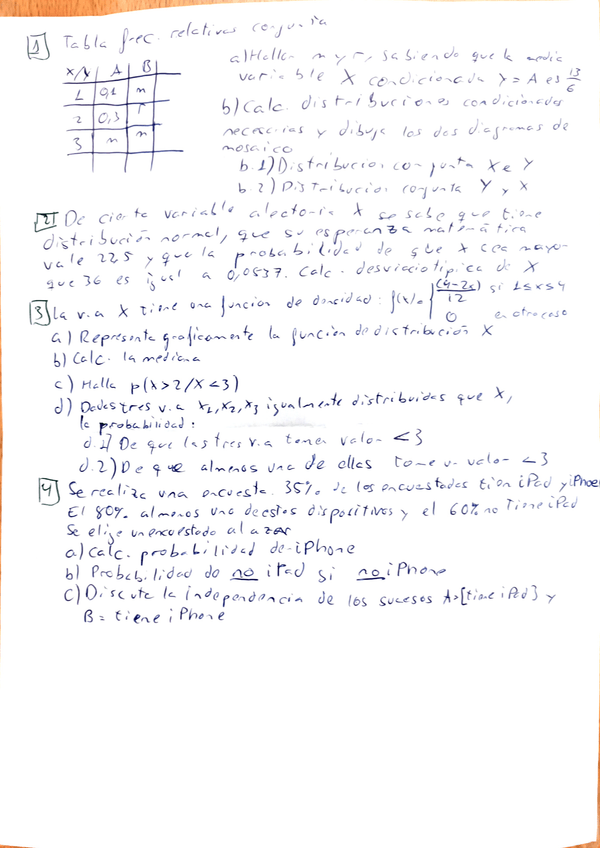 1 Tabla frec. relativas conjunta
a) Hallar m y r, sabiendo que la media
X/Y A B
variable X condicionada Y = A es 13/6
1 0,1 n
b) Calc. distribuciones condicionadas
2 0,3 r
necesarias y dibuja los dos diagramas de
3 m n
mosaico
b.1) Distribucion conjunta X e Y
b.2) Distribucion conjunta Y y X
2 De cierta variable aleatoria X se sabe que tiene
distribución normal, que su esperanza matemática
vale 22,5 y que la probabilidad de que X sea mayor
que 36 es igual a 0,0537. Calc. desviacio tipica de X
3 La v.a X tiene una funcion de densidad: f(x) = { (9-2x)/12 si 1≤x≤4
0 en otro caso
a) Representa graficamente la función de distribución X
b) Calc. la mediana
c) Halla p(X>2/X<3)
d) Dadas tres v.a x1, x2, x3 igualmente distribuidas que X,
la probabilidad:
d.1) De que las tres v.a tomen valor <3
d.2) De que almenos una de ellas tome un valor <3
4 Se realiza una encuesta. 35% de los encuestados tien iPad y iPhone
El 80% almenos uno de estos dispositivos y el 60% no tiene iPad
Se elige un encuestado al azar
a) Calc. probabilidad de iPhone
b) Probabilidad de no iPad si no iPhone
c) Discute la independencia de los sucesos A=[tiene iPad} y
B = tiene iPhone